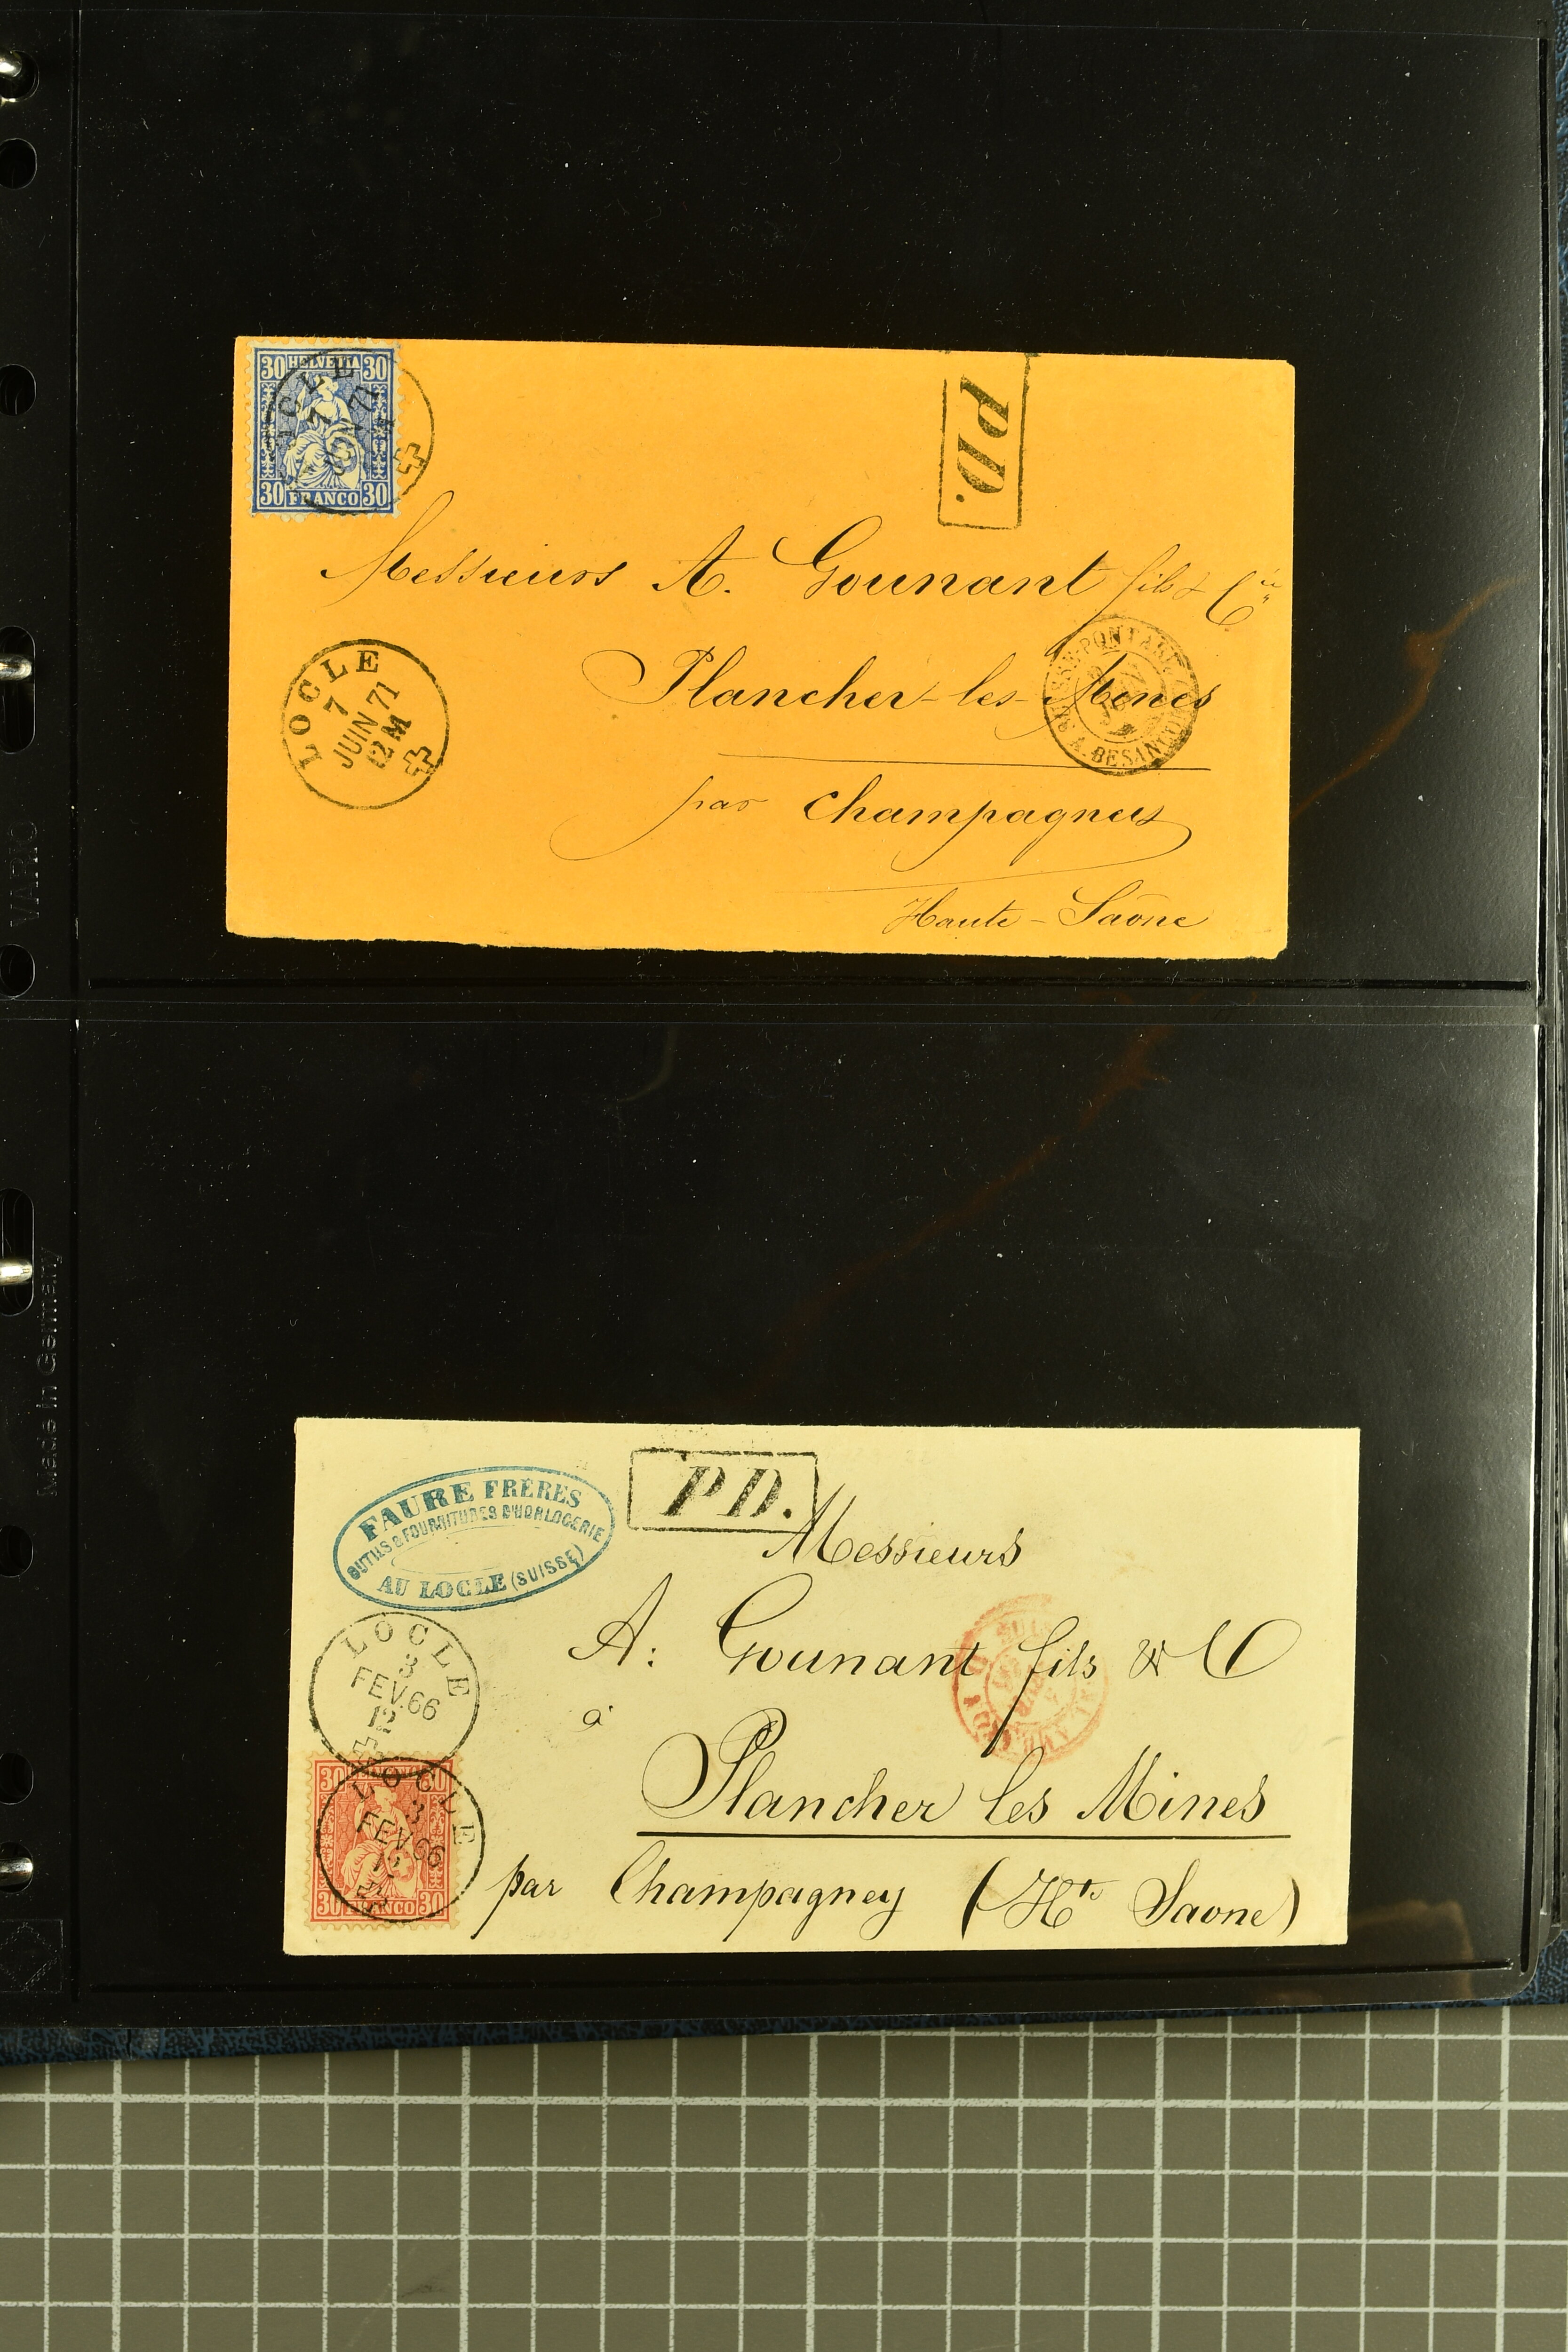 30 HELVETIA 30
30 FRANCO 30
LOCLE
7
71
PD.
Messieurs A. Gounant fils & Cie
Plancher-les-Mines
LOCLE
7
JUIN 71
12 M
BESANÇON
par Champagney
Haute-Saône
VARIO
Made in Germany
FAURE FRÈRES
OUTILS & FOURNITURES D'HORLOGERIE
AU LOCLE (SUISSE)
PD.
Messieurs
A: Gounant fils & C
à
Plancher les Mines
par Champagney (Hte Saone)
LOCLE
3
FEV. 66
12
LOCLE
3
FEV. 66
12
30 30
30 FRANCO 30